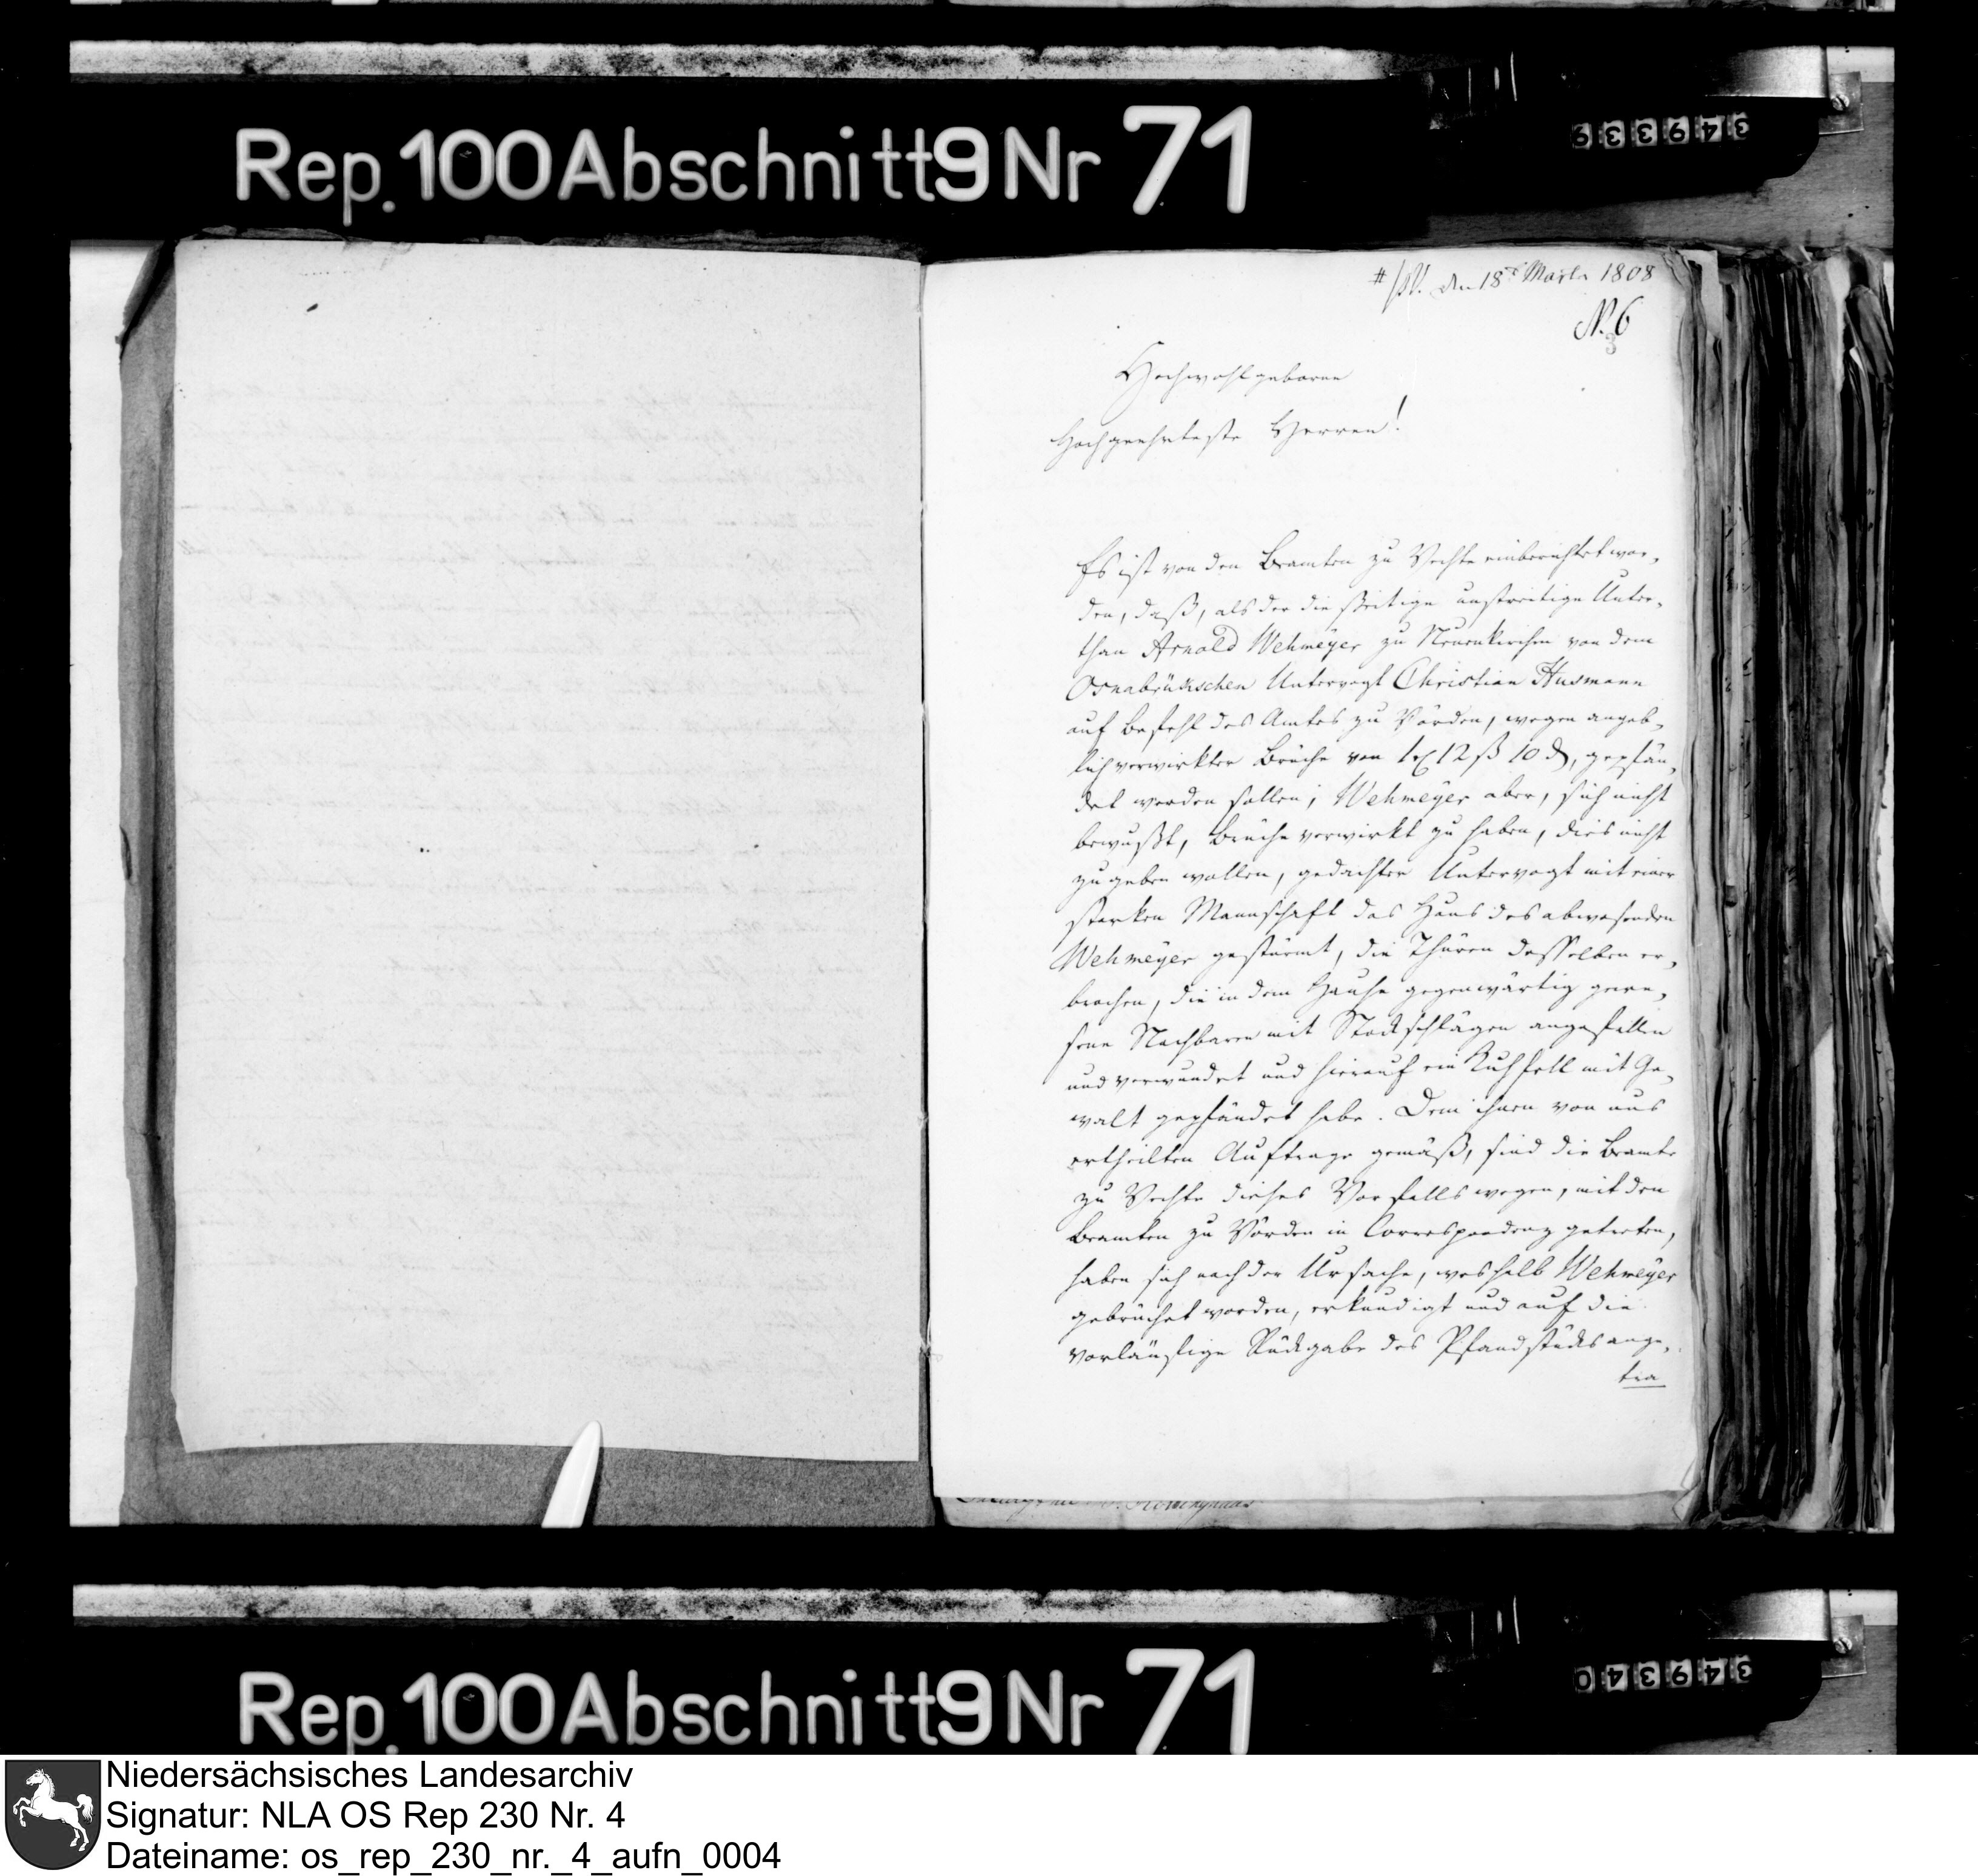 Rep. 100 Abschnitt 9 Nr 71
349339
den 18t Martz 1808
N. 6
3
Hochwohlgeborne
Hochgeehrteste Herren!
Es ist von den Beamten zu Vechte einberichtet wor-
den, daß, als der diesseitige unstreitige Unter-
than Arnold Wehmeÿer zu Neuenkirchen von dem
Osnabrükschen Untervogt Christian Husmann
auf Befehl des Amtes zu Vörden, wegen angeb-
lich verwirkter Brüche von 1 12 ß 10 d, gepfän-
det werden sollen; Wehmeÿer aber, sich nicht
bewußt, Brüche verwirkt zu haben, dies nicht
zugeben wollen, gedachter Untervogt mit einer
starken Mannschaft das Haus des abwesenden
Wehmeÿer gestürmt, die Thüren desselben er-
brochen, die in dem Hause gegenwärtig gewe-
sene Nachbaren mit Stockschlägen angefallen
und verwundet und hierauf ein Kuhfell mit Ge-
walt gepfändet habe. Dem ihnen von uns
ertheilten Auftrage gemäß, sind die Beamte
zu Vechte dieses Vorfalls wegen, mit den
Beamten zu Vörden in Correspondenz getreten,
haben sich nach der Ursache, weshalb Wehmeÿer
gebrüchet worden, erkundigt und auf die
vorläufige Rückgabe des Pfandstücks ange-
tra
Rep. 100 Abschnitt 9 Nr 71
349340
Niedersächsisches Landesarchiv
Signatur: NLA OS Rep 230 Nr. 4
Dateiname: os_rep_230_nr._4_aufn_0004